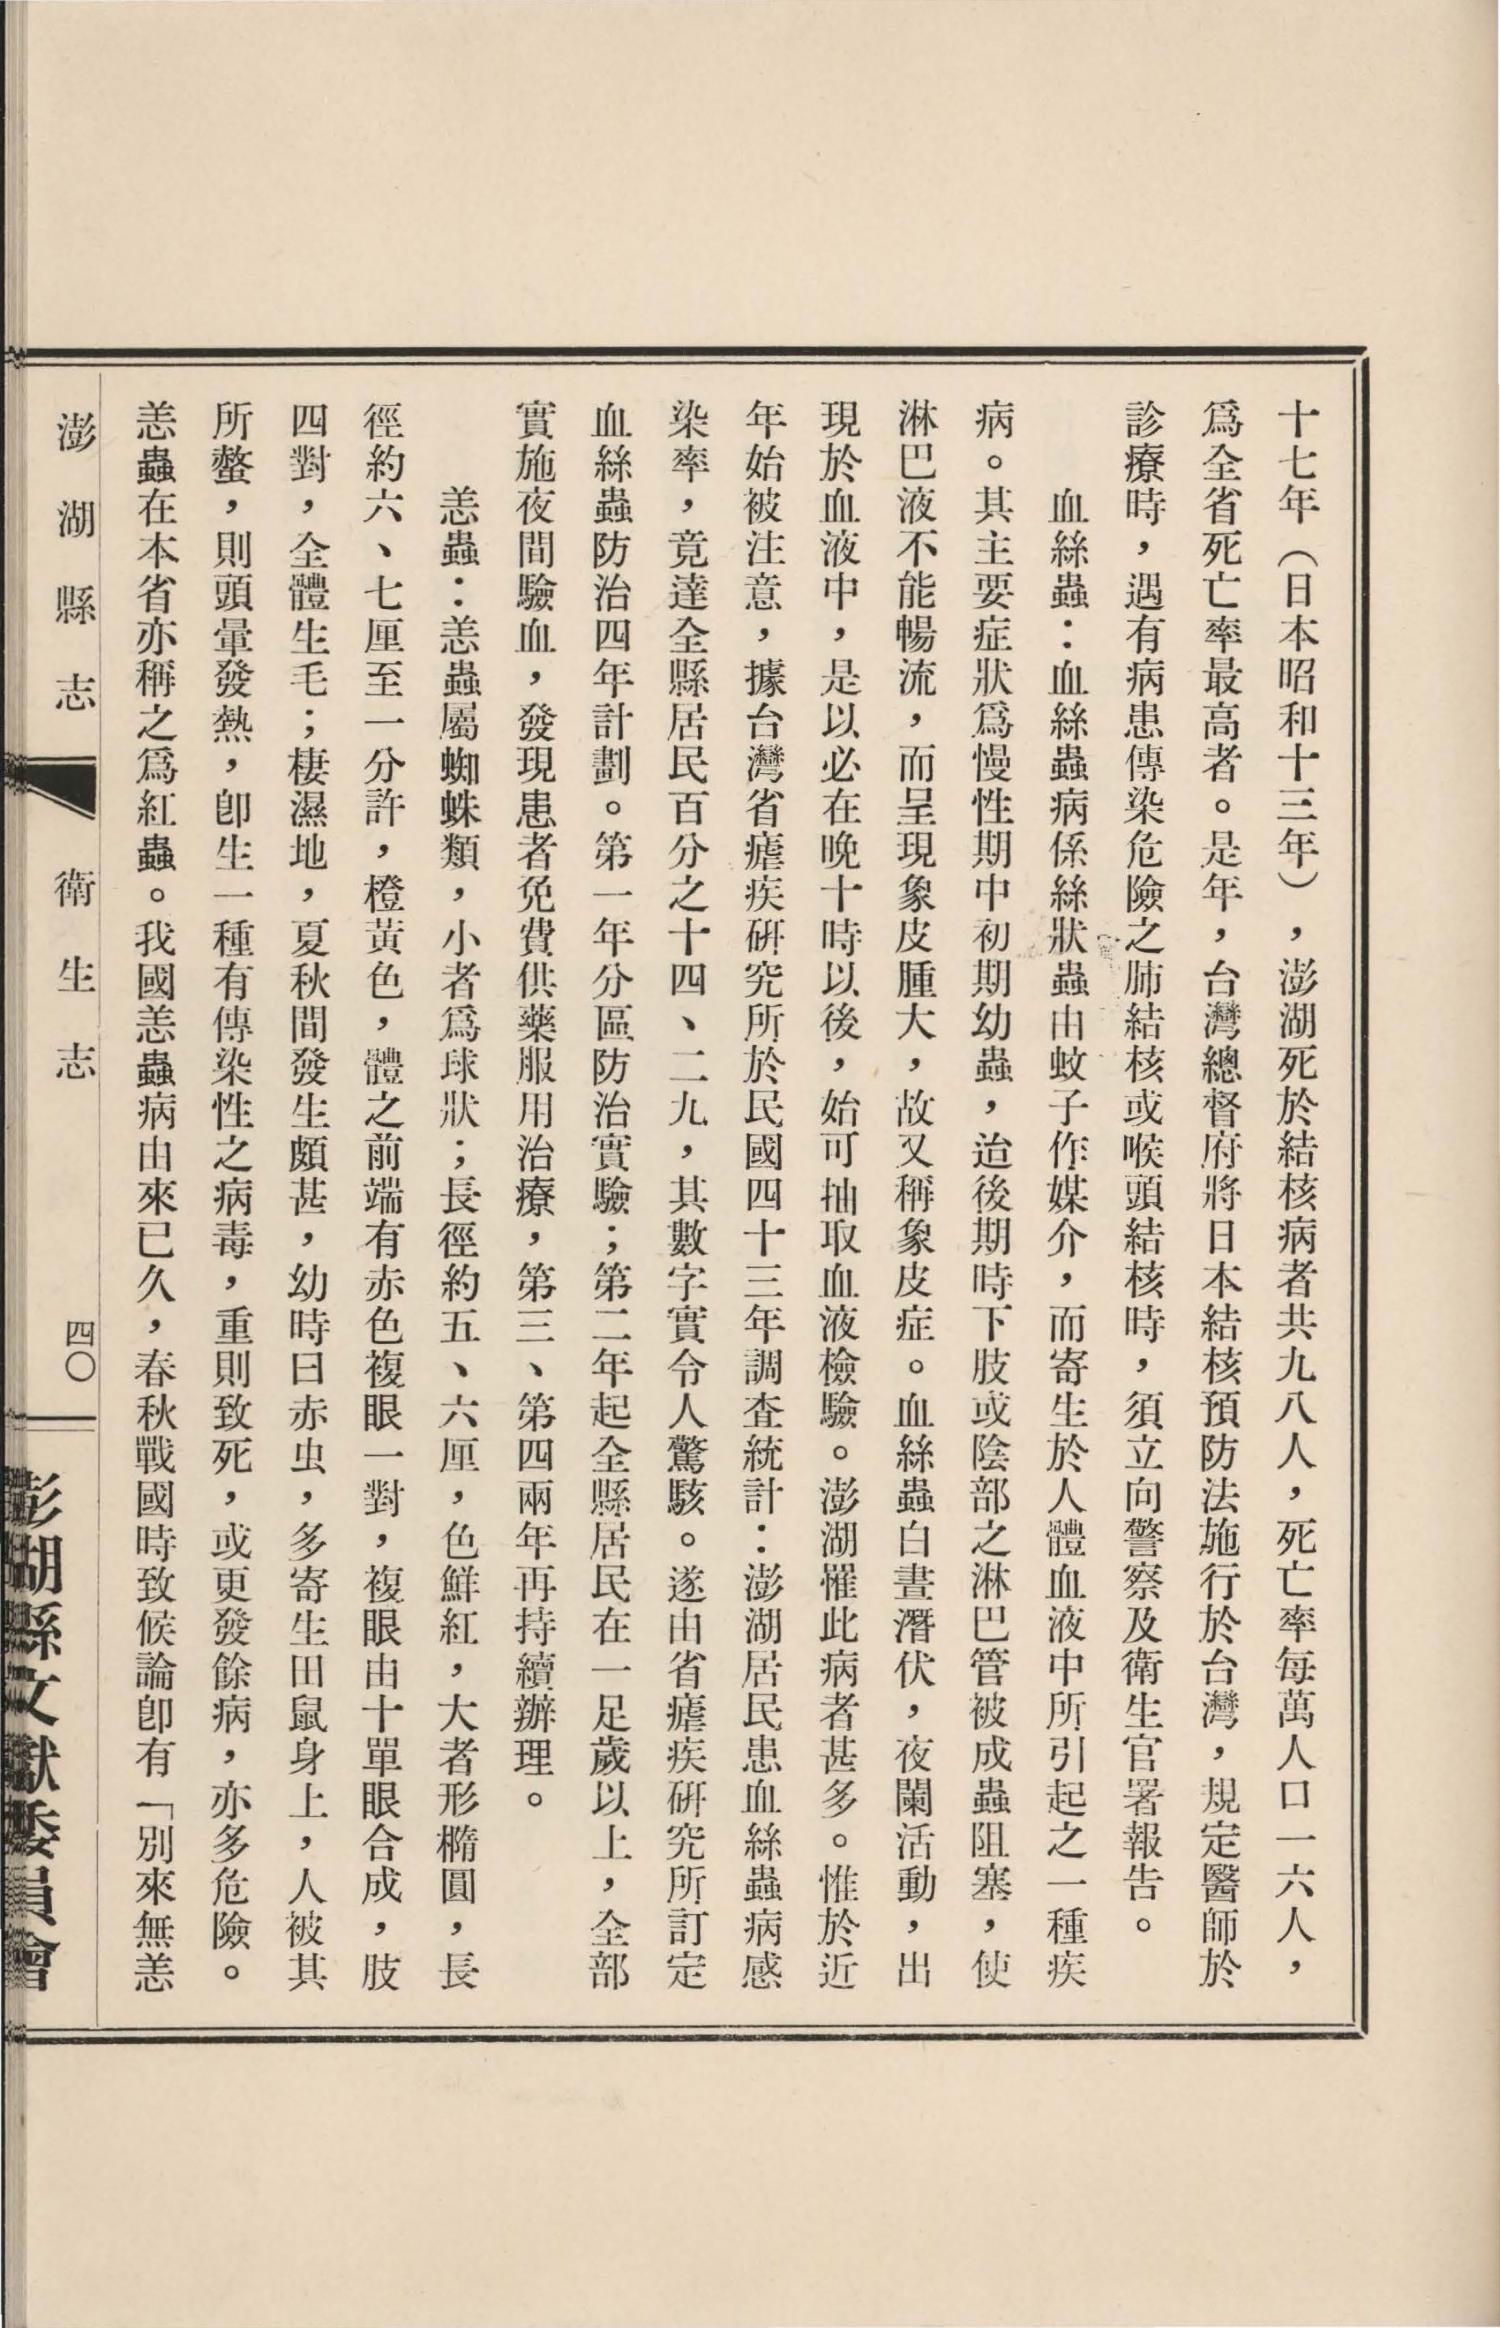 十七年（日本昭和十三年），澎湖死於結核病者共九八人，死亡率每萬人口一六人，
爲全省死亡率最高者。是年，台灣總督府將日本結核預防法施行於台灣，規定醫師於
診療時，遇有病患傳染危險之肺結核或喉頭結核時，須立向警察及衛生官署報告。
血絲蟲：血絲蟲病係絲狀蟲由蚊子作媒介，而寄生於人體血液中所引起之一種疾
病。其主要症狀爲慢性期中初期幼蟲，迨後期時下肢或陰部之淋巴管被成蟲阻塞，使
淋巴液不能暢流，而呈現象皮腫大，故又稱象皮症。血絲蟲白晝潛伏，夜闌活動，出
現於血液中，是以必在晚十時以後，始可抽取血液檢驗。澎湖罹此病者甚多。惟於近
年始被注意，據台灣省瘧疾硏究所於民國四十三年調査統計：澎湖居民患血絲蟲病感
染率，竟達全縣居民百分之十四、二九，其數字實令人驚駭。遂由省瘧疾硏究所訂定
血絲蟲防治四年計劃。第一年分區防治實驗；第二年起全縣居民在一足歲以上，全部
實施夜間驗血，發現患者免費供藥服用治療，第三、第四兩年再持續辦理。
恙蟲：恙蟲屬蜘蛛類，小者爲球狀；長徑約五、六厘，色鮮紅，大者形橢圓，長
徑約六、七厘至一分許，橙黃色，體之前端有赤色複眼一對，複眼由十單眼合成，肢
四對，全體生毛；棲濕地，夏秋間發生頗甚，幼時曰赤虫，多寄生田鼠身上，人被其
所螫，則頭暈發熱，卽生一種有傳染性之病毒，重則致死，或更發餘病，亦多危險。
恙蟲在本省亦稱之爲紅蟲。我國恙蟲病由來已久，春秋戰國時致候論卽有「別來無恙
澎湖縣志
衛生志
四〇
澎湖縣文獻委員會